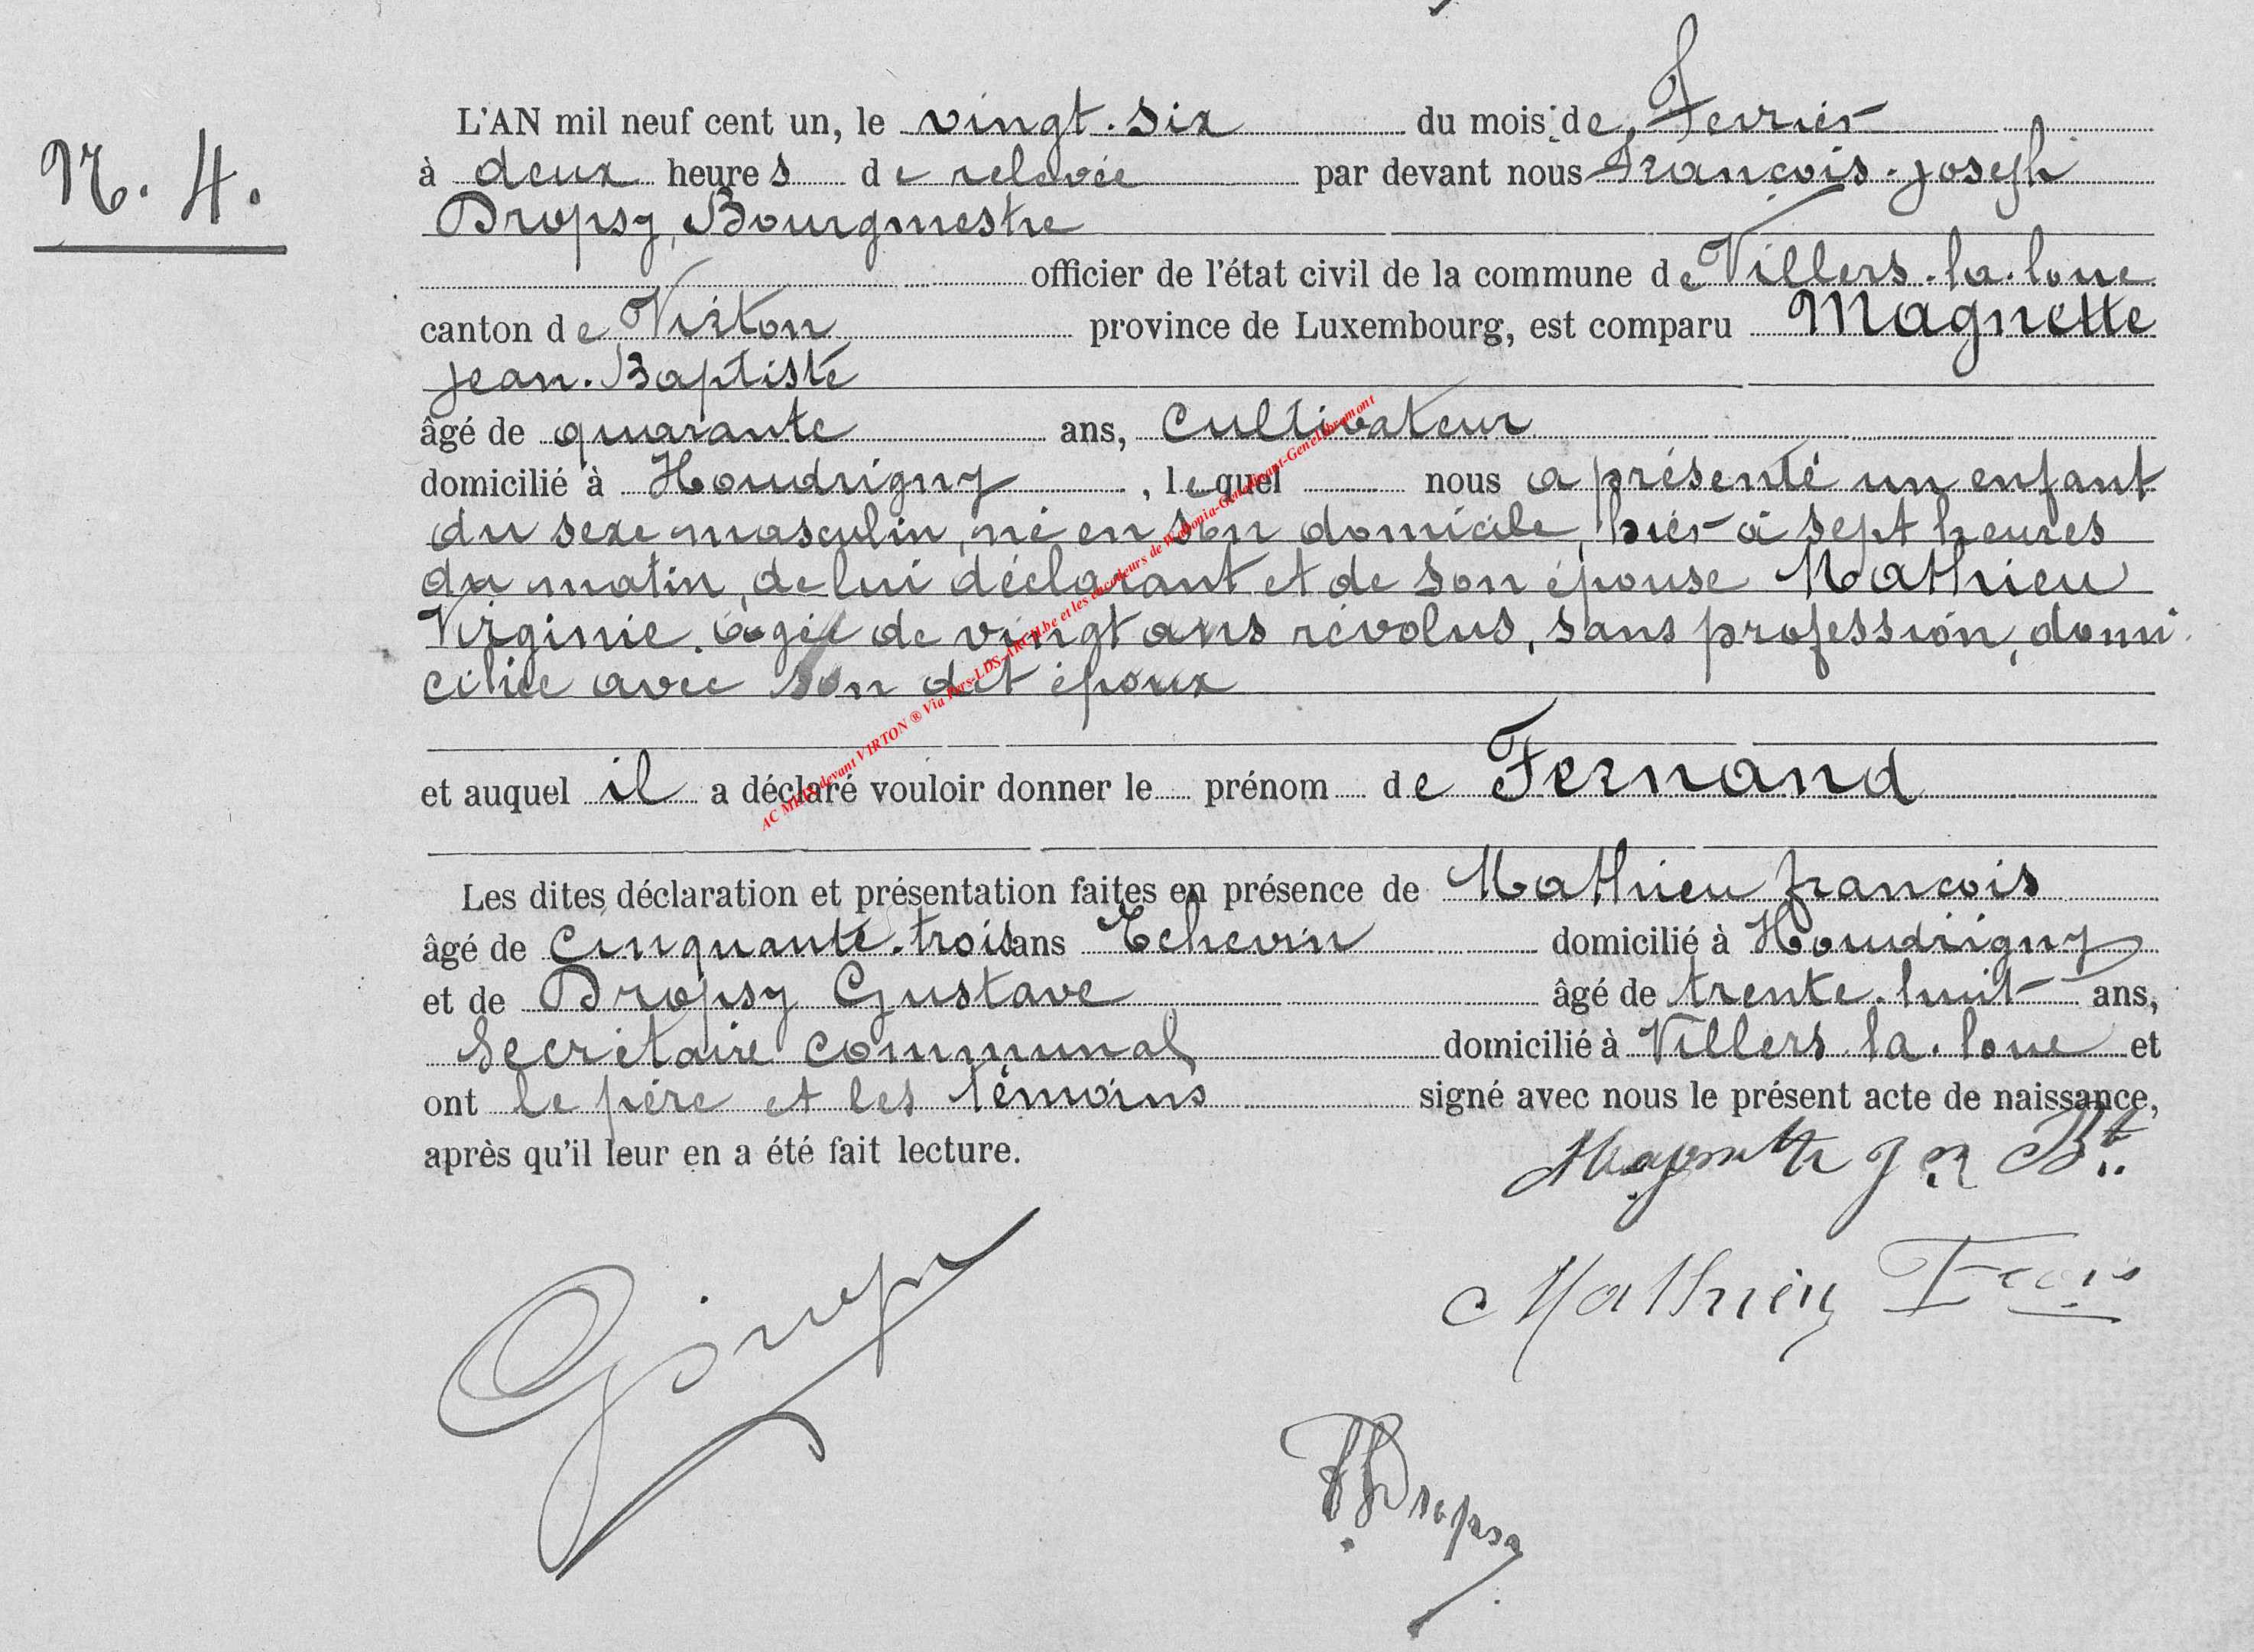 N. 4.
L'AN mil neuf cent un, le vingt-six du mois de Fevrier
à deux heures de relevée par devant nous François-joseph
Dropsy, Bourgmestre
officier de l'état civil de la commune de Villers-la-loue
canton de Virton province de Luxembourg, est comparu Magnette
jean-Baptiste
âgé de quarante ans, Cultivateur
domicilié à Houdrigny, lequel nous a présenté un enfant
du sexe masculin, né en son domicile, hier à sept heures
du matin, de lui déclarant et de son épouse Mathieu
Virginie. agée de vingt ans révolus, sans profession, domi
ciliée avec son dit époux
et auquel il a déclaré vouloir donner le prénom de Fernand
Les dites déclaration et présentation faites en présence de Mathieu françois
âgé de cinquante-trois ans Echevin domicilié à Houdrigny
et de Dropsy Gustave âgé de trente-huit ans,
Secrétaire communal domicilié à Villers-la-loue et
ont le père et les témoins signé avec nous le présent acte de naissance,
après qu'il leur en a été fait lecture.
Magnette Jn Bte
Mathieu Fcois
Dropsy